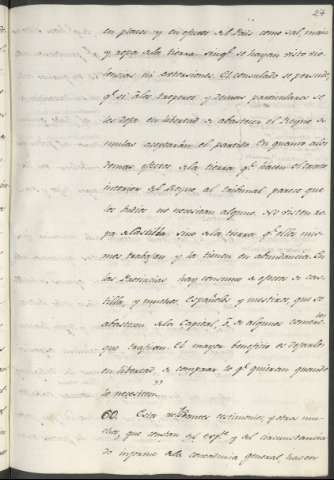 27
en plata, y en efectos del Pais como sal, maiz
y ropa de la tierra sin q.e se hayan visto vio-
lencias, ni extorsiones. El consulado se persuade
q.e si á los tratantes y demas particulares se
les deja en libertad de abastecer el Reyno de
mulas tomarán el partido. En quanto a los
demas efectos de la tierra q.e hacen el trato
interior del Reyno, al tribunal parece que
los Indios no necesitan alguno. No visten ro-
pa de Castilla, sino de la tierra q.e ellos mis-
mos trabajan y la tienen en abundancia. En
las Provincias hay consumo de efectos de Cas-
tilla, y muchos Españoles y mestizos, que se
abastecen de la Capital, ó de algunos comer.tes
que trafican. El mayor beneficio es dejarlos
en libertad, de comprar lo q.e quieran quando
lo necesiten."
60. Estos relevantes testimonios, y otros mu-
chos, que constan en exp.te y del circunstanciado
informe de la contaduria general, hacen